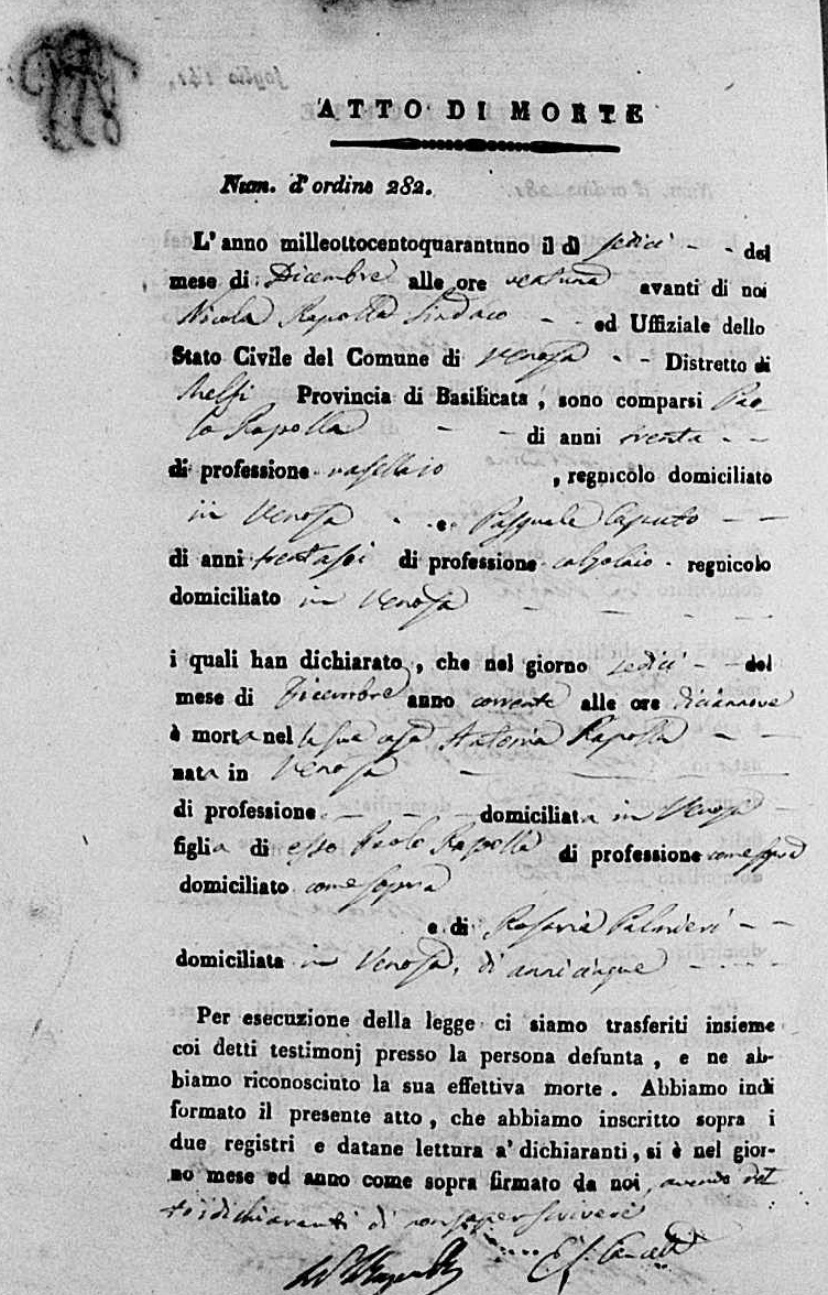 ATTO DI MORTE
Num. d'ordine 282.
L'anno milleottocentoquarantuno il dì sedici del
mese di Dicembre alle ore ventuna avanti di noi
Nicola Rapolla Sindaco ed Uffiziale dello
Stato Civile del Comune di Venosa Distretto di
Melfi Provincia di Basilicata, sono comparsi Pao-
lo Rapolla di anni trenta
di professione vasellaio, regnicolo domiciliato
in Venosa e Pasquale Caputo
di anni di professione calzolaio regnicolo
domiciliato in Venosa
i quali han dichiarato, che nel giorno sedici del
mese di Dicembre anno corrente alle ore diciannove
è morta nel la sua casa Antonia Rapolla
nata in Venosa
di professione domiciliata in Venosa
figlia di esso Paolo Rapolla di professione come sopra
domiciliato come sopra
e di Rosaria Palmieri
domiciliata in Venosa, di anni cinque
Per esecuzione della legge ci siamo trasferiti insieme
coi detti testimonj presso la persona defunta, e ne ab-
biamo riconosciuto la sua effettiva morte. Abbiamo indi
formato il presente atto, che abbiamo inscritto sopra i
due registri e datane lettura a' dichiaranti, si è nel gior-
no mese ed anno come sopra firmato da noi, avendo det
to i dichiaranti di non saper scrivere